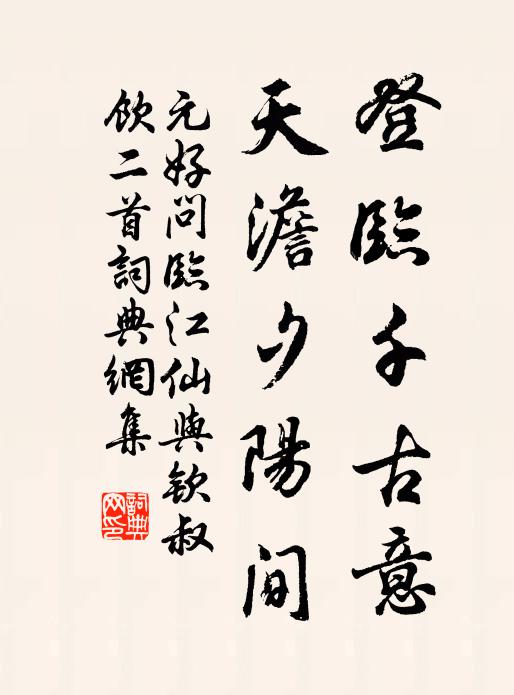 登臨千古意
天澹夕陽间
元好问臨江仙與欽叔
飲二首詞典網集
詞典
网印